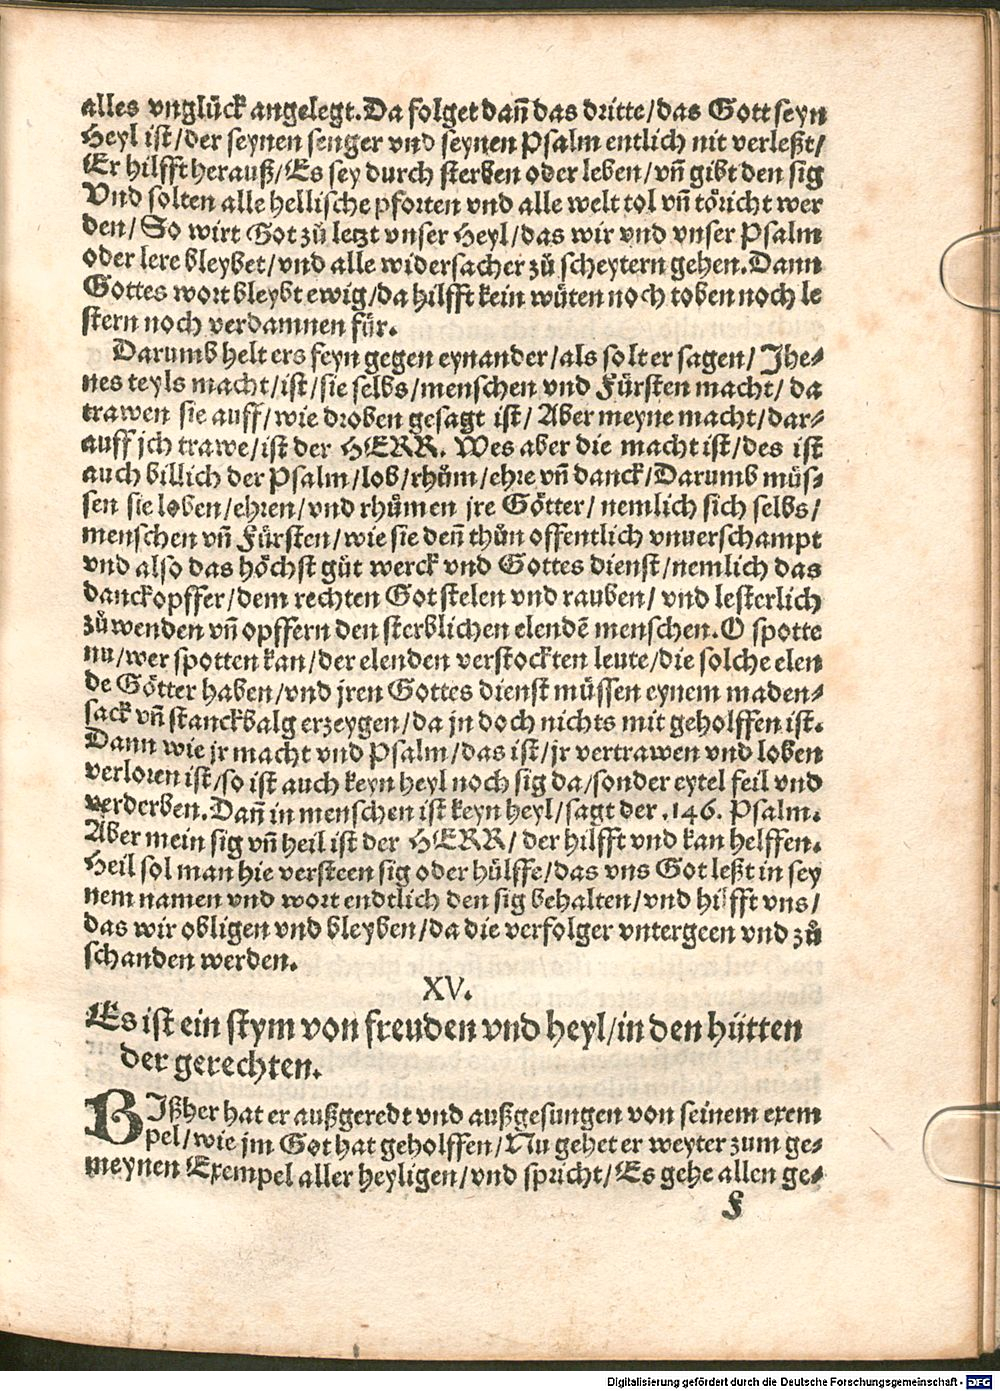 alles vnglück angelegt. Da folget dañ das dritte/das Gott seyn
Heyl ist/der seynen senger vnd seynen Psalm entlich nit verleßt/
Er hilfft herauß/Es sey durch sterben oder leben/vñ gibt den sig
Vnd solten alle hellische pforten vnd alle welt tol vñ töricht wer
den/So wirt Got zů letzt vnser Heyl/das wir vnd vnser Psalm
oder lere bleybet/vnd alle widersacher zů scheytern gehen. Dann
Gottes wort bleybt ewig/da hilfft kein wüten noch toben noch le
stern noch verdamnen für.
Darumb helt ers feyn gegen eynander/als solt er sagen/Jhe⸗
nes teyls macht/ist/sie selbs/menschen vnd Fürsten macht/da
trawen sie auff/wie droben gesagt ist/Aber meyne macht/dar⸗
auff jch trawe/ist der HERR. Wes aber die macht ist/des ist
auch billich der Psalm/lob/rhům/ehre vñ danck/Darumb müs⸗
sen sie loben/ehren/vnd rhůmen jre Götter/nemlich sich selbs/
menschen vñ Fürsten/wie sie deñ thůn offentlich vnuerschampt
vnd also das höchst gůt werck vnd Gottes dienst/nemlich das
danckopffer/dem rechten Got stelen vnd rauben/vnd lesterlich
zůwenden vñ opffern den sterblichen elendẽ menschen. O spotte
nu/wer spotten kan/der elenden verstockten leute/die solche elen
de Götter haben/vnd jren Gottes dienst müssen eynem maden⸗
sack vñ stanckbalg erzeygen/da jn doch nichts mit geholffen ist.
Dann wie jr macht vnd Psalm/das ist/jr vertrawen vnd loben
verloren ist/so ist auch keyn heyl noch sig da/sonder eytel feil vnd
verderben. Dañ in menschen ist keyn heyl/sagt der .146. Psalm.
Aber mein sig vñ heil ist der HERR/der hilfft vnd kan helffen.
Heil sol man hie versteen sig oder hülffe/das vns Got leßt in sey
nem namen vnd wort endtlich den sig behalten/vnd hilfft vns/
das wir obligen vnd bleyben/da die verfolger vntergeen vnd zů
schanden werden.
XV.
Es ist ein stym von freuden vnd heyl/in den hütten
der gerechten.
BJßher hat er außgeredt vnd außgesungen von seinem exem
pel/wie jm Got hat geholffen/Nu gehet er weyter zum ge⸗
meynen Exempel aller heyligen/vnd spricht/Es gehe allen ge⸗
F
Digitalisierung gefördert durch die Deutsche Forschungsgemeinschaft - DFG